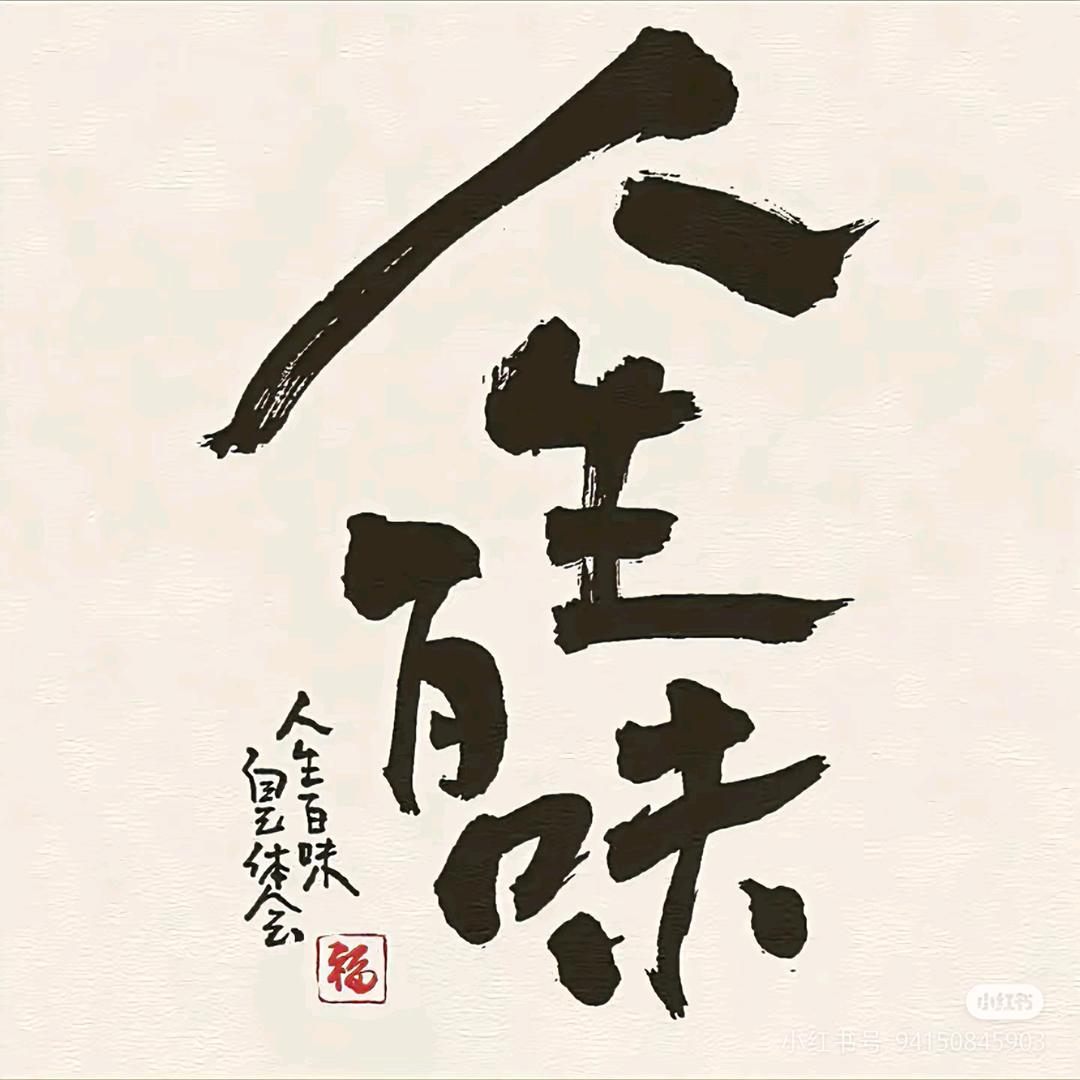 人生百味
人生百味
自己体会
福
小红书
小红书号 94150845903